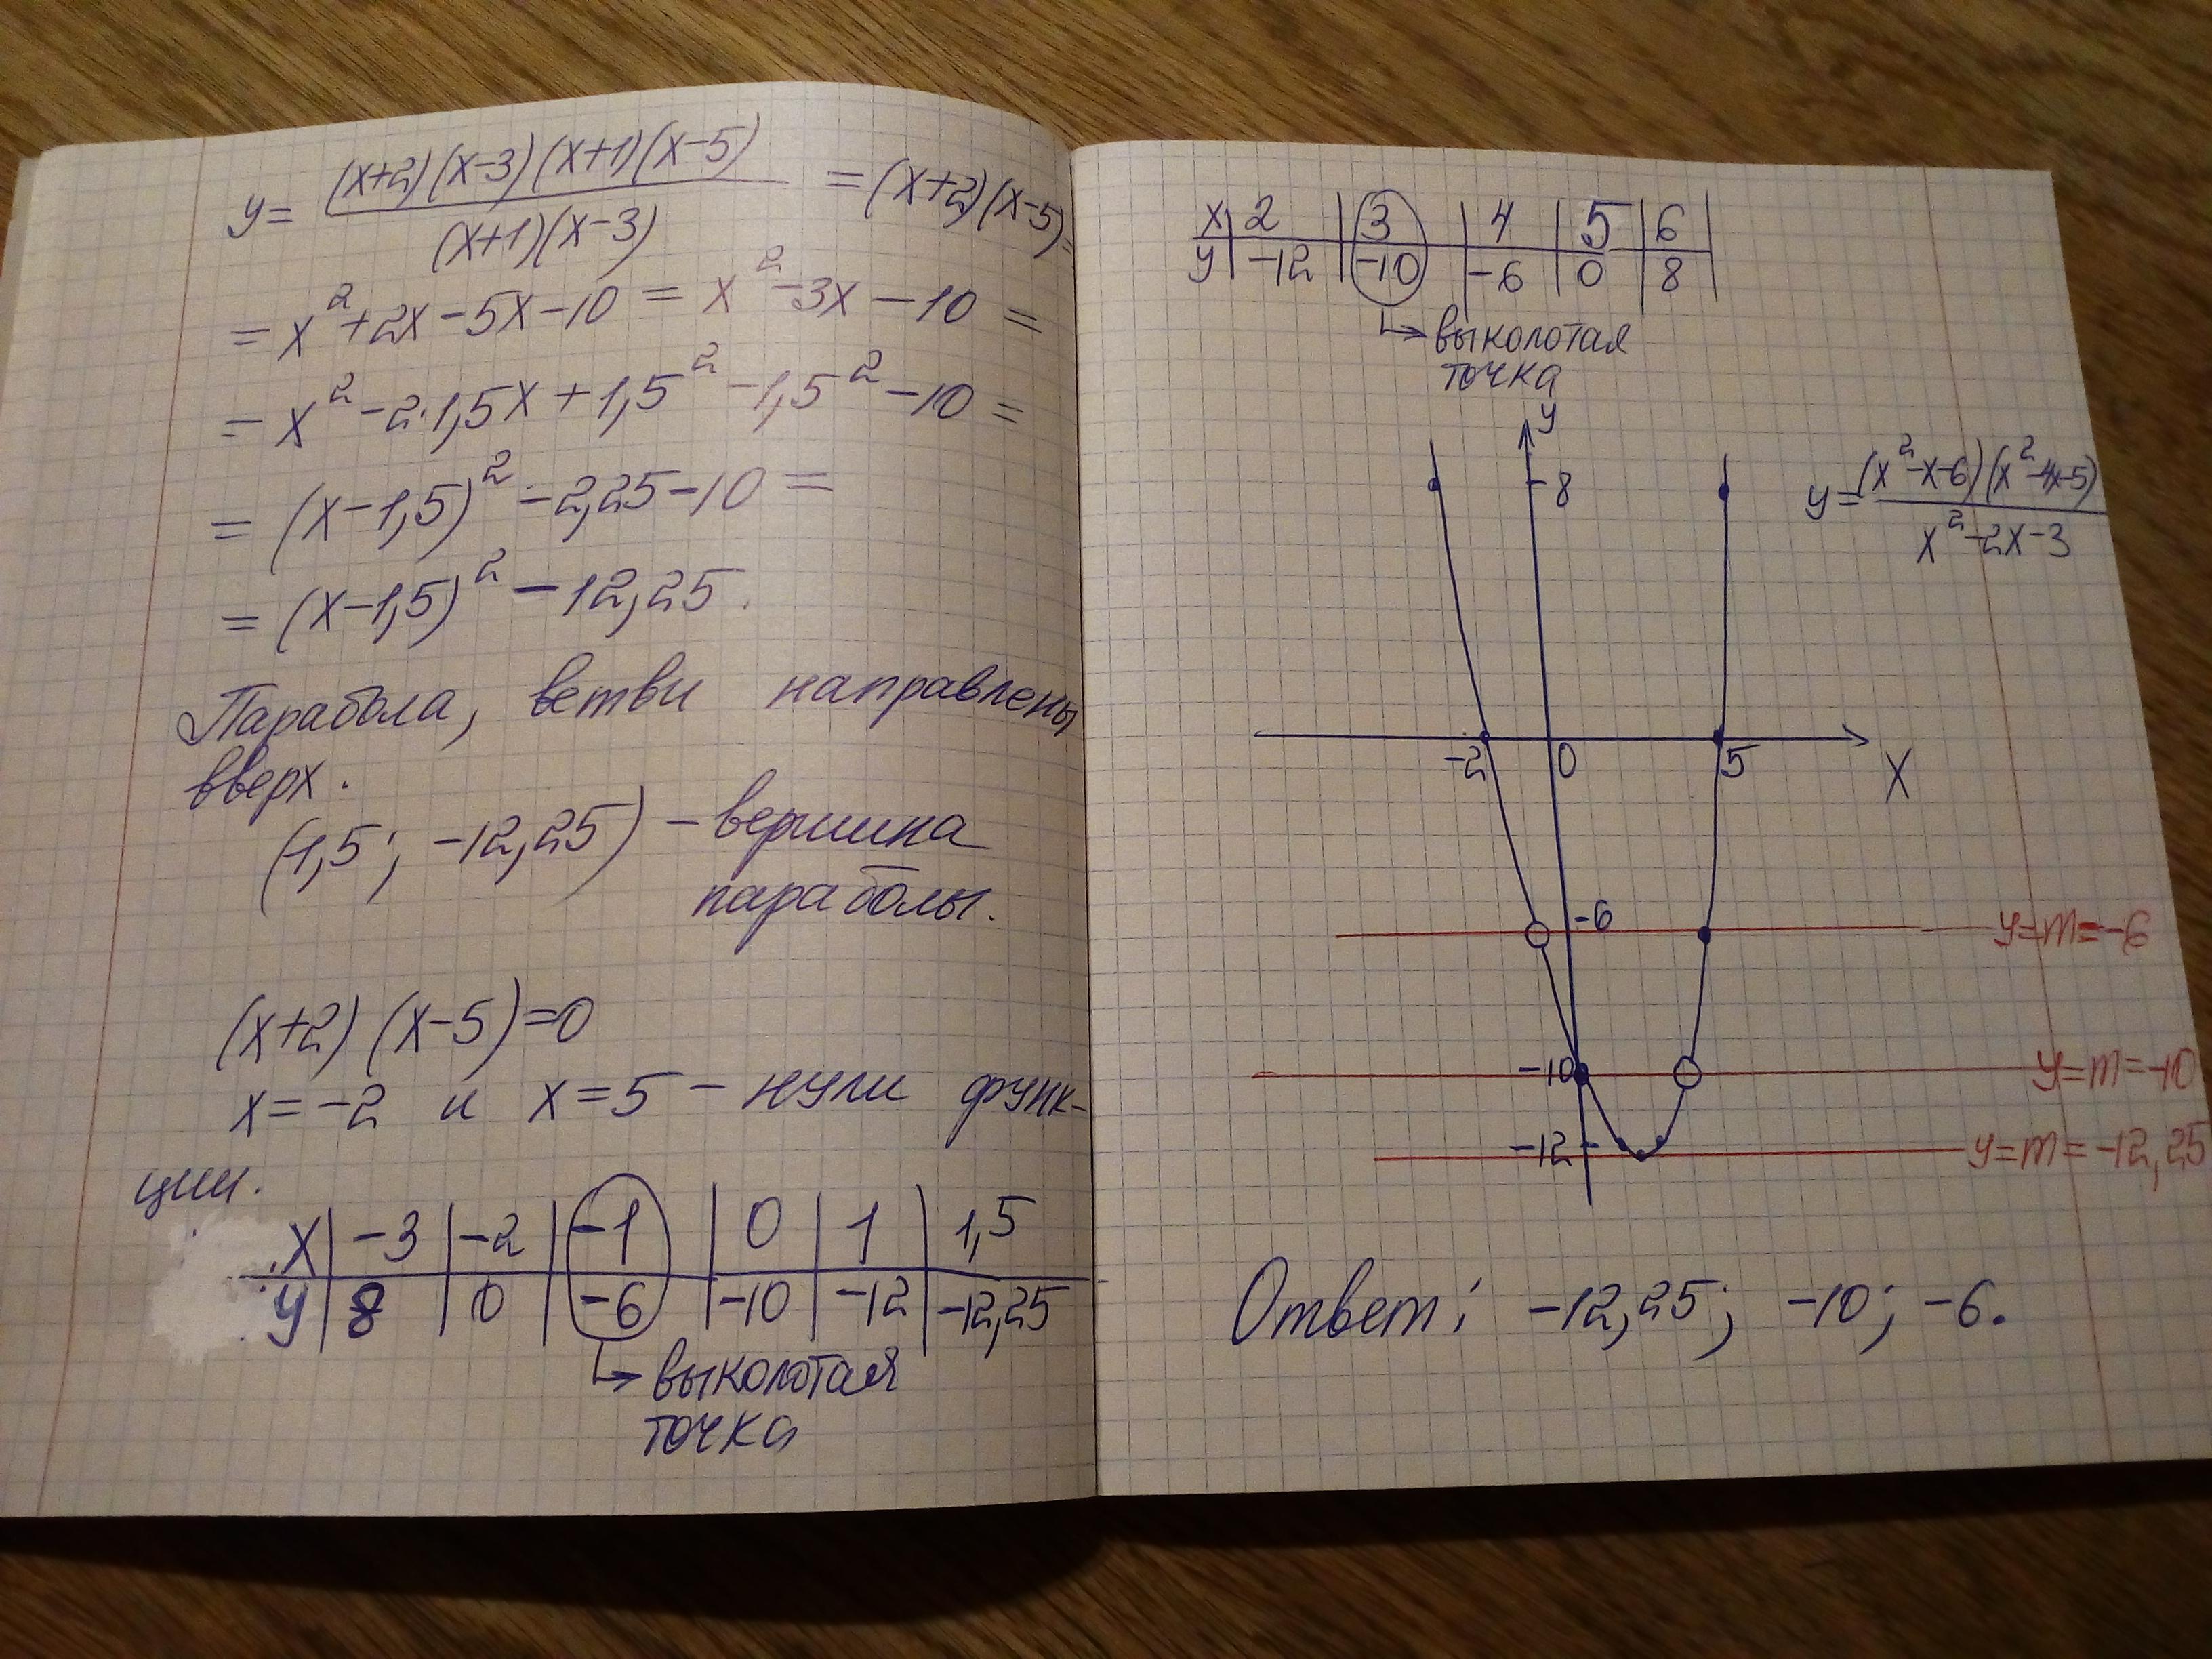 y= (x+2)(x-3)(x+1)(x-5) / (x+1)(x-3) =(x+2)(x-5)=
= x²+2x-5x-10 = x²-3x-10 =
= x²-2·1,5x+1,5²-1,5²-10 =
= (x-1,5)²-2,25-10 =
= (x-1,5)²-12,25.
Парабола, ветви направлены
вверх.
(1,5; -12,25) - вершина
параболы.
(x+2)(x-5)=0
x=-2 и x=5 - нули функ-
ции.
x | -3 | -2 | -1 | 0 | 1 | 1,5
y | 8 | 0 | -6 | -10 | -12 | -12,25
выколотая
точка
x | 2 | 3 | 4 | 5 | 6
y | -12 | -10 | -6 | 0 | 8
выколотая
точка
y
8
y= (x²-x-6)(x²-4x-5) / x²-2x-3
-2 0 5 X
-6 y=m=-6
-10 y=m=-10
-12 y=m=-12,25
Ответ: -12,25; -10; -6.